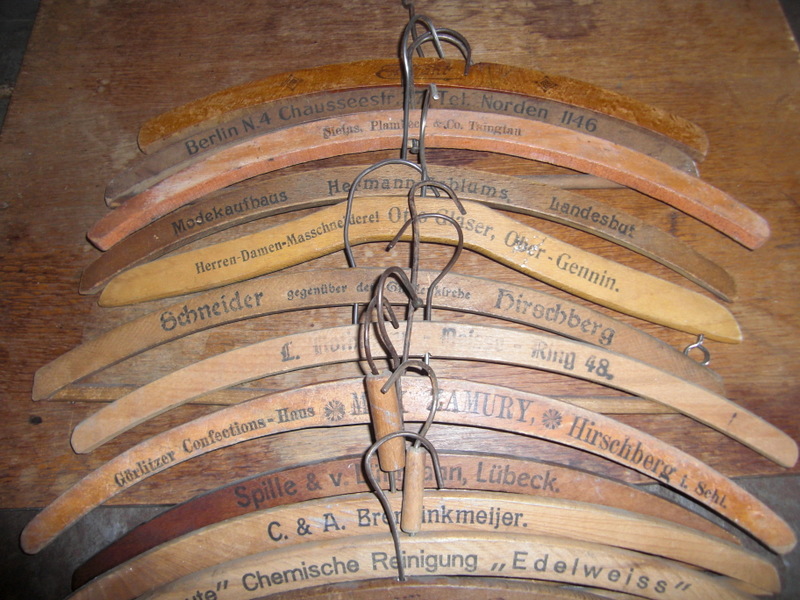 Berlin N.4 Chausseestr. Tel. Norden 1146
Co. Tsingtau
Modekaufhaus Hermann Landeshut
Herren-Damen-Masschneiderei Otto Gläser, Ober-Gennin.
Schneider gegenüber der Hirschberg
L. Ring 48.
Görlitzer Confections-Haus Hirschberg i. Schl.
Spille & v. Lübeck.
C. & A. Brenninkmeijer.
Chemische Reinigung „Edelweiss”